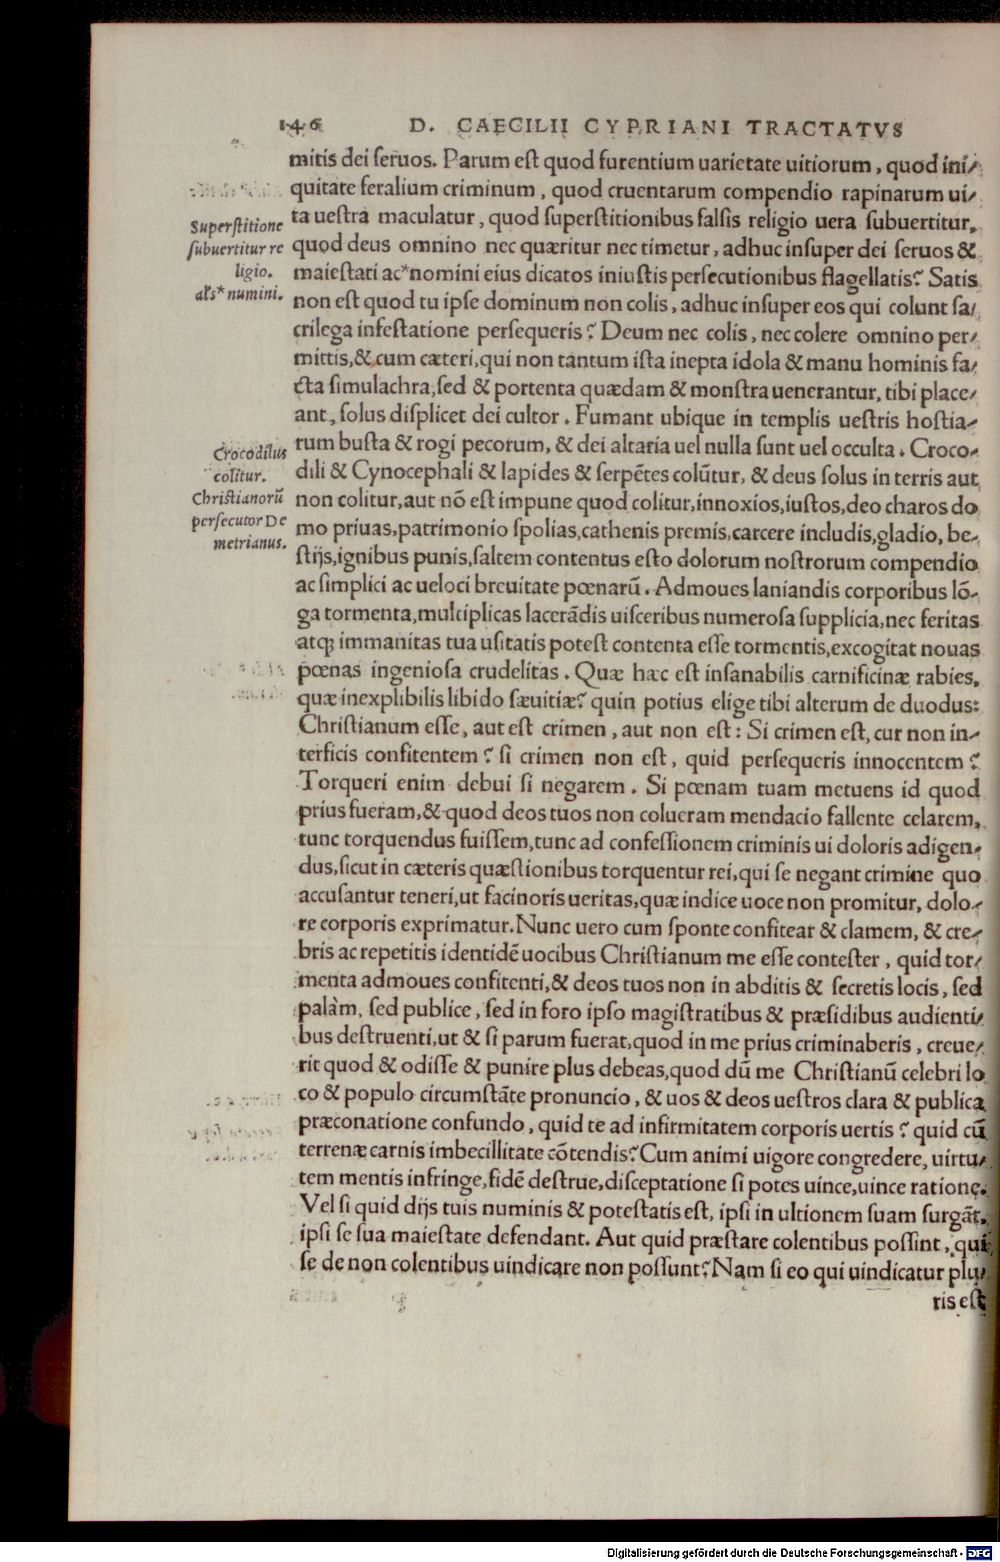 146 D. CAECILII CYPRIANI TRACTATVS
mitis dei seruos. Parum est quod furentium uarietate uitiorum, quod ini-
quitate feralium criminum, quod cruentarum compendio rapinarum ui-
ta uestra maculatur, quod superstitionibus falsis religio uera subuertitur,
quod deus omnino nec quæritur nec timetur, adhuc insuper dei seruos &
maiestati ac*nomini eius dicatos iniustis persecutionibus flagellatis? Satis
non est quod tu ipse dominum non colis, adhuc insuper eos qui colunt sa-
crilega infestatione persequeris? Deum nec colis, nec colere omnino per-
mittis, & cum cæteri, qui non tantum ista inepta idola & manu hominis fa-
cta simulachra, sed & portenta quædam & monstra uenerantur, tibi place-
ant, solus displicet dei cultor. Fumant ubique in templis uestris hostia-
rum busta & rogi pecorum, & dei altaria uel nulla sunt uel occulta. Croco-
dili & Cynocephali & lapides & serpētes colūtur, & deus solus in terris aut
non colitur, aut nō est impune quod colitur, innoxios, iustos, deo charos do
mo priuas, patrimonio spolias, cathenis premis, carcere includis, gladio, be-
stijs, ignibus punis, saltem contentus esto dolorum nostrorum compendio
ac simplici ac ueloci breuitate pœnarū. Admoues laniandis corporibus lō-
ga tormenta, multiplicas lacerādis uisceribus numerosa supplicia, nec feritas
atq; immanitas tua usitatis potest contenta esse tormentis, excogitat nouas
pœnas ingeniosa crudelitas. Quæ hæc est insanabilis carnificinæ rabies,
quæ inexplibilis libido sæuitiæ? quin potius elige tibi alterum de duodus:
Christianum esse, aut est crimen, aut non est: Si crimen est, cur non in-
terficis confitentem? si crimen non est, quid persequeris innocentem?
Torqueri enim debui si negarem. Si pœnam tuam metuens id quod
prius fueram, & quod deos tuos non colueram mendacio fallente celarem,
tunc torquendus fuissem, tunc ad confessionem criminis ui doloris adigen-
dus, sicut in cæteris quæstionibus torquentur rei, qui se negant crimine quo
accusantur teneri, ut facinoris ueritas, quæ indice uoce non promitur, dolo-
re corporis exprimatur. Nunc uero cum sponte confitear & clamem, & cre-
bris ac repetitis identidē uocibus Christianum me esse contester, quid tor-
menta admoues confitenti, & deos tuos non in abditis & secretis locis, sed
palàm, sed publice, sed in foro ipso magistratibus & præsidibus audienti-
bus destruenti, ut & si parum fuerat, quod in me prius criminaberis, creue-
rit quod & odisse & punire plus debeas, quod dū me Christianū celebri lo
co & populo circumstāte pronuncio, & uos & deos uestros clara & publica
præconatione confundo, quid te ad infirmitatem corporis uertis? quid cū
terrenæ carnis imbecillitate cōtendis? Cum animi uigore congredere, uirtu-
tem mentis infringe, fidē destrue, disceptatione si potes uince, uince ratione.
Vel si quid dijs tuis numinis & potestatis est, ipsi in ultionem suam surgāt,
ipsi se sua maiestate defendant. Aut quid præstare colentibus possint, qui
se de non colentibus uindicare non possunt? Nam si eo qui uindicatur plu-
ris est
Superstitione
subuertitur re
ligio.
als* numini.
Crocodilus
colitur.
Christianorū
persecutor De
metrianus.
Digitalisierung gefördert durch die Deutsche Forschungsgemeinschaft - DFG